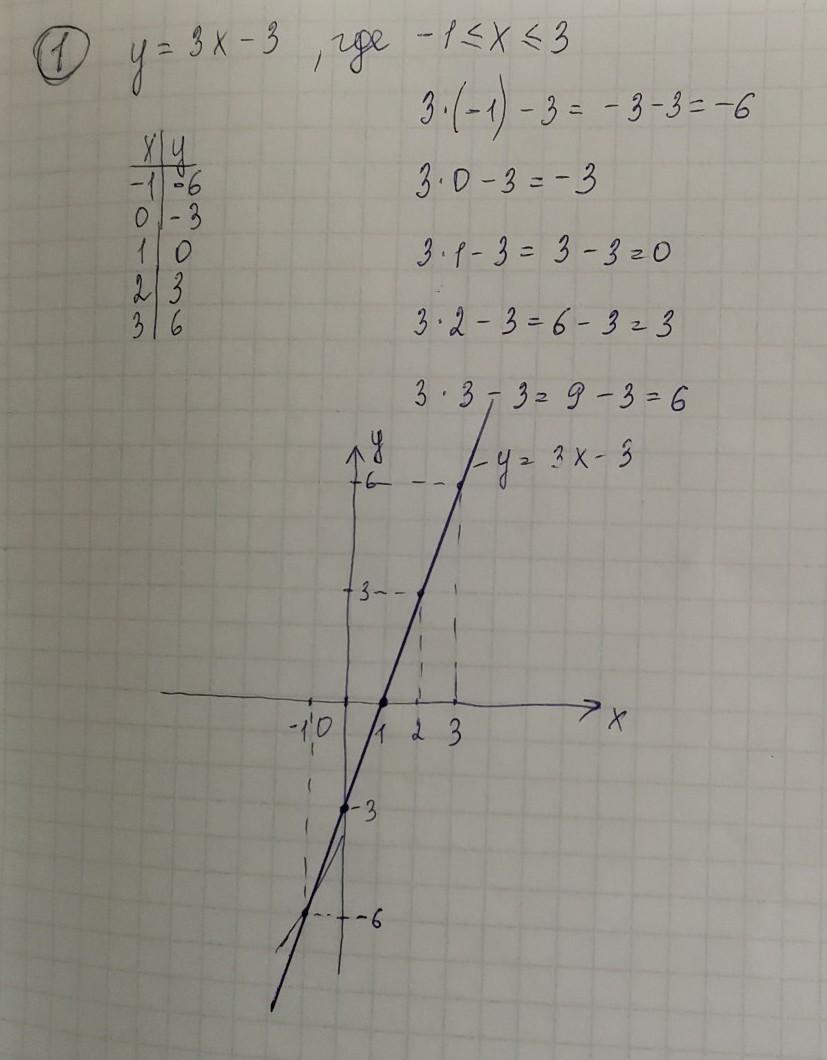 1 y = 3x - 3 , где -1 ≤ x ≤ 3
3·(-1) - 3 = -3 - 3 = -6
x | y
-1 | -6
0 | -3
1 | 0
2 | 3
3 | 6
3·0 - 3 = -3
3·1 - 3 = 3 - 3 = 0
3·2 - 3 = 6 - 3 = 3
3·3 - 3 = 9 - 3 = 6
y
y = 3x - 3
6
3
-1 0 1 2 3 x
-3
-6